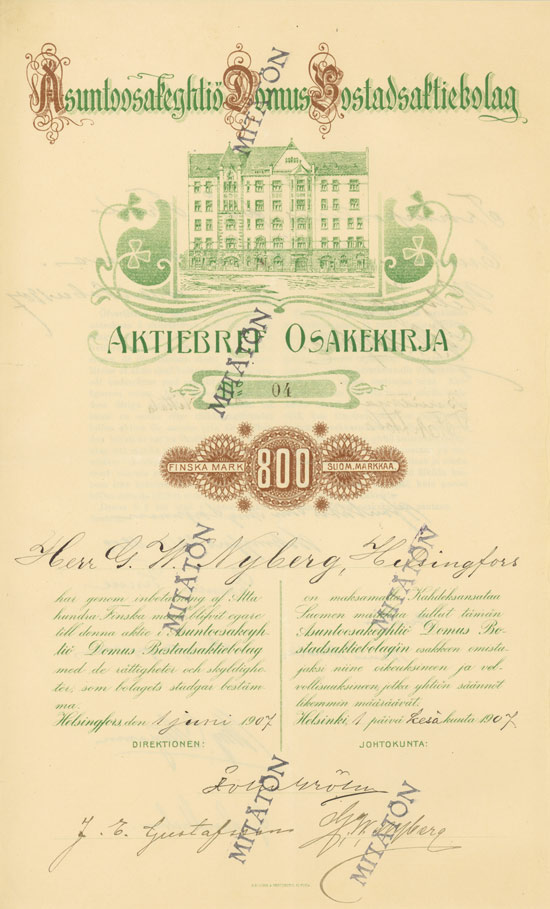 Asuntoosakeyhtiö Domus Bostadsaktiebolag
MITÄTÖN
AKTIEBREF OSAKEKIRJA
MITÄTÖN
04
FINSKA MARK 800 SUOM. MARKKAA.
Herr G. W. Nyberg, Helsingfors
MITÄTÖN
MITÄTÖN
har genom inbetalning af Åtta
hundra Finska mark blifvit egare
till denna aktie i Asuntoosakeyh-
tiö Domus Bostadsaktiebolag
med de rättigheter och skyldighe-
ter, som bolagets stadgar bestäm-
ma.
Helsingfors den 1 juni 1907
DIREKTIONEN:
on maksamalla Kahdeksansataa
Suomen markkaa tullut tämän
Asuntoosakeyhtiö Domus Bo-
stadsaktiebolagin osakkeen omista-
jaksi niine oikeuksineen ja vel-
vollisuuksineen, jotka yhtiön säännöt
likemmin määräävät.
Helsinki, 1 päivä kesäkuuta 1907.
JOHTOKUNTA:
MITÄTÖN
MITÄTÖN
J. E. Gustafsson
G. W. Nyberg